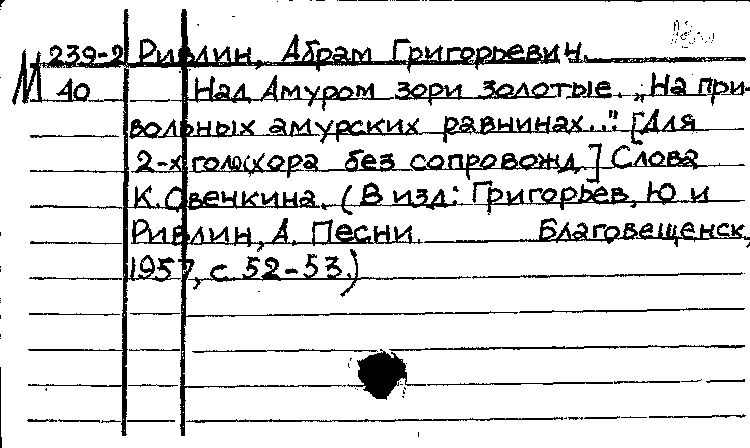 239-2 Ривлин, Абрам Григорьевич.
М 40 Над Амуром зори золотые. „На при-
вольных амурских равнинах..." [Для
2-х голос. хора без сопровожд.] Слова
К. Овечкина. (В изд: Григорьев, Ю и
Ривлин, А. Песни. Благовещенск,
1957, с 52-53.)